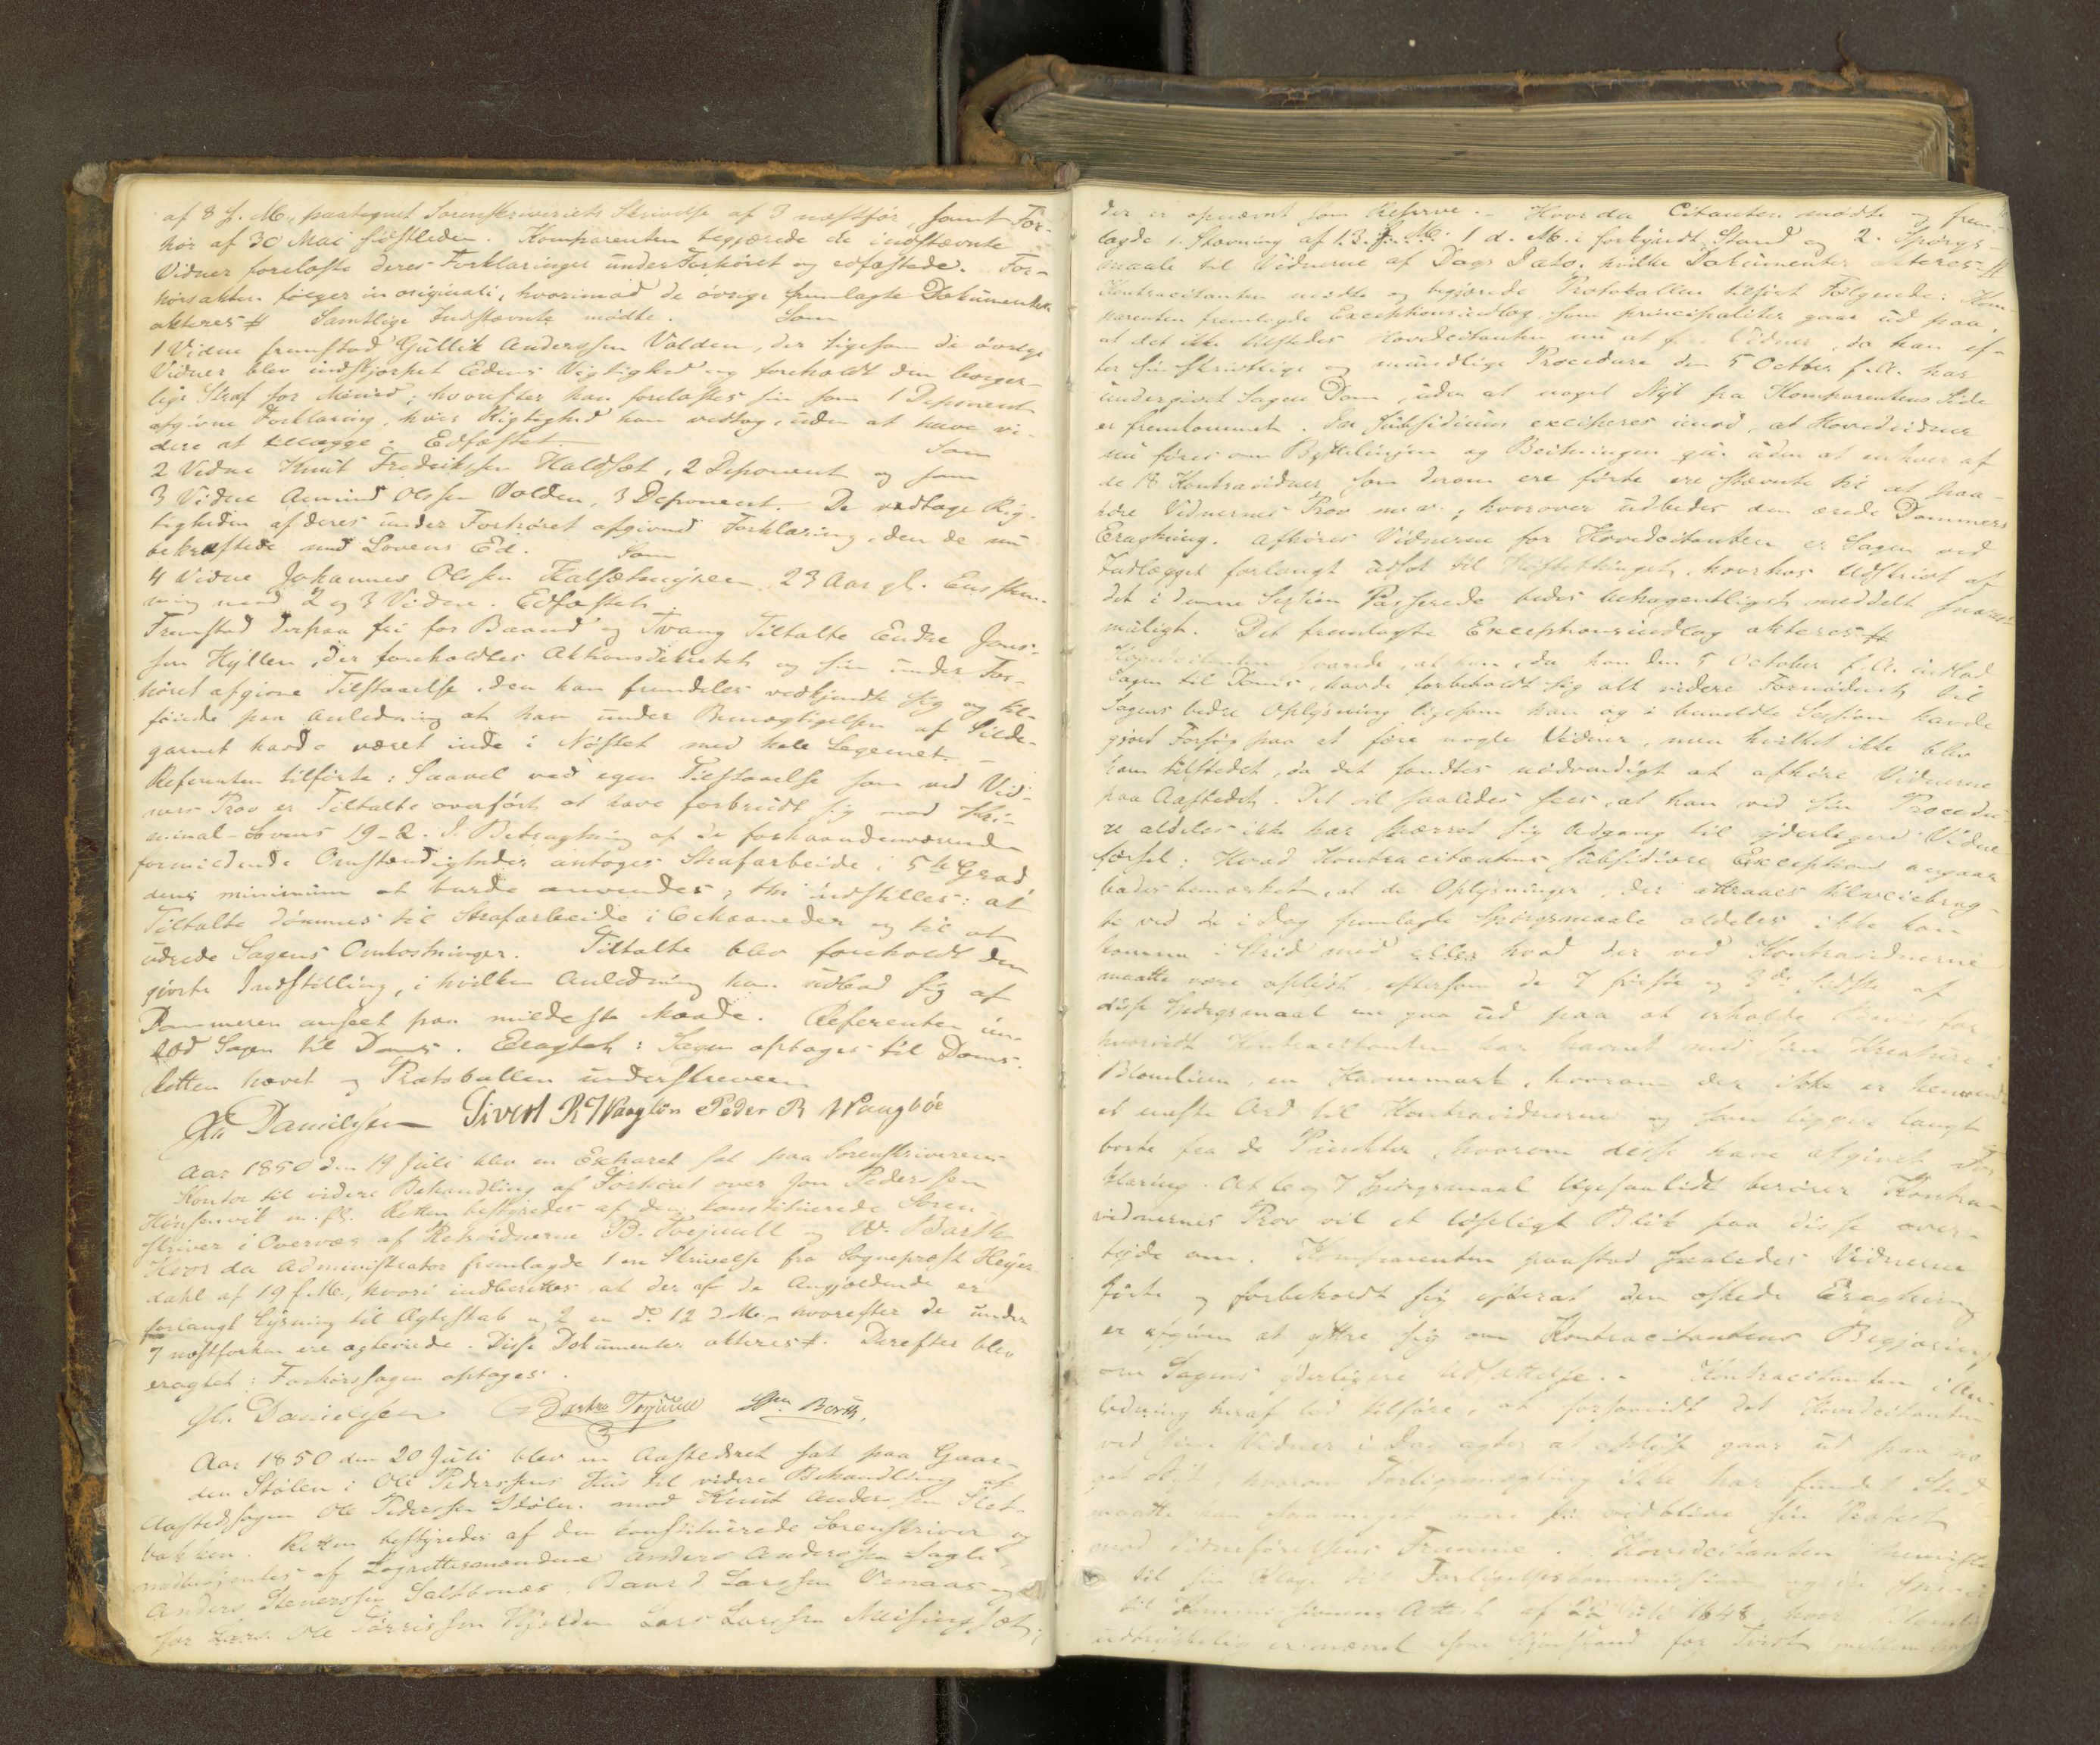 af 8 f. M., paategnet Sorenskriveriets Skrivelse af 3 næstfør, samt For-
hør af 30 Mai sidstleden. Komparenten begjærede de indstævnte
Vidner forelæste deres Forklaringer under Forhøret og edfæstede. For-
hørsakten følger in originali, hvorimod de øvrige fremlagte Dokumenter
akteres # Samtlige Indstævnte mødte. Som
1 Vidne fremstod Gullik Anderssen Volden, der ligesom de øvrige
Vidner blev indskjærpet Edens Vigtighed og foreholdt den borger-
lige Straf for Mened; hvorefter han forelæstes sin som 1 Deponent
afgivne Forklaring, hvis Rigtighed han vedtog, uden at have vi-
dere at tillægge. Edfæstet. Som
2 Vidne Knut Fredrikssen Haldsæt, 2 Deponent og som
3 Vidne Amund Olssen Volden, 3 Deponent. De vedtage Rig-
tigheden af deres under Forhøret afgivne Forklaring, den de nu
bekræftede med Lovens Ed. Som
4 Vidne Johannes Olssen Halsætmyren 23 Aar gl. Eensstem-
mig med 2 og 3 Vidne. Edfæstet.
Fremstod derpaa fri for Baand og Tvang Tiltalte Endre Jons-
sen Hyllen, der foreholdtes Aktionsdekretet og sin under For-
høret afgivne Tilstaaelse, den han fremdeles vedkjendte sig og til-
føiede paa Anledning at han under Bemægtigelsen af Silde-
garnet havde været inde i Nøstet med hele Legemet. -
Referenten tilførte: Saavel ved egen Tilstaaelse som ved Vid-
ners Prov er Tiltalte overført at have forbrudt sig mod Kri-
minal-Lovens 19-2. I Betragtning af de forhaandenværende
formildende Omstændigheder antoges Strafarbeide i 5te Grad
dens minimum at burde anvendes; thi indstilles: at
Tiltalte dømmes til Strafarbeide i 6 Maaneder og til at
udrede Sagens Omkostninger. Tiltalte blev foreholdt den
gjorte Indstilling, i hvilken Anledning han udbad sig af
Dommeren anseet paa mildeste Maade. Referenten in-
lod Sagen til Doms. Eragtet: Sagen optages til Doms.
Retten hævet og Protokollen underskreven
Danielssen Sivert R Waagbøe Peder R Waagbøe
Aar 1850 den 19 Juli blev en Extraret sat paa Sorenskriverens
Kontor til videre Behandling af Forhøret over Jon Pederssen
m. fl. Retten bestyredes af den konstituerede Soren-
skriver i Overvær af Retsvidnerne B. Tvejuell og W. Barth
Hvor da Administrator fremlagde 1 en Skrivelse fra Sognepræst Heyer-
dahl af 19 f. M., hvori indberettes, at der af de Angjældende er
forlangt Lysning til Ægteskab og 2 en do 12 d. M., hvorefter de under
7 næstforhen ere ægteviede. Disse Dokumenter akteres #. Derefter blev
eragtet: Forhørssagen optages.
Danielssen Barth,
Aar 1850 den 20 Juli blev en Aastedsret sat paa Gaar-
den Stølen i Ole Pederssens Huus til videre Behandling af
Aastedssagen Ole Pederssen Stølen mod Knut Anderssen Slet-
bakken. Retten bestyredes af den konstituerede Sorenskriver og
medbetjentes af Laugrettesmændene Anders Anderssen
Anders Stenerssen Saltbonæs, Baard Larssen Venaas og
for Lars Ole Tørrissen Lars Larssen Meisingsæt,
der er opnævnt som Reserve. - Hvor da Citanten mødte og frem-
lagde 1. Stævning af 13 f. M. 1 d. M. i forkyndt Stand og 2. Spørgs-
maale til Vidnerne af Dags Dato, hvilke Dokumenter akteres #
Kontracitanten mødte og begjærede Protokollen tilført Følgende: Kom-
parenten fremlagde Exceptionsindlæg, som principaliter gaar ud paa,
at det ikke tilstedes Hovedcitanten nu at føre Vidner, da han ef-
ter sin skriftlige og mundlige Procedure den 5 October f. A. har
undergivet Sagen Dom, uden at noget Nyt fra Komparentens Side
er fremkommet. In Subsidium exciperes imod, at Hovedvidner
nu føres om Byttelinjen og Beitningen uden at enhver af
de 18 Kontravidner, som derom ere førte ere stævnte til at paa-
høre Vidnernes Prov m. v.; hvorover udbedes den ærede Dommers
Eragtning. Afhøres Vidnerne for Hovedcitanten er Sagen ved
Indlægget forlangt udsat til Høsttthinget, hvorhos Udskrivt af
det i denne Session Passerede bedes behageligst meddelt snarest
muligt. Det fremlagte Exceptionsindlæg akteres #
Hovedcitanten svarede, at han, da han den 5 October f. A. indlod
Sagen til Doms, havde forbeholdt sig alt videre Fornødent til
Sagens bedre Oplysning ligesom han og i bemeldte Session havde
gjort Forsøg paa at føre nogle Vidner, men hvilket ikke blev
ham tilstedet, da det fandtes nødvendigt at afhøre Vidnerne
paa Aastedet. Det vil saaledes sees, at han ved sin Procedu-
re aldeles ikke har spærret sig Adgang til yderligere Vidne-
førsel: Hvad Kontracitantens subsidiære Exception angaar
bedes bemærket, at de Oplysninger, der attraaes tilveiebrag-
te ved de i Dag fremlagte Spørgsmaale aldeles ikke kan
komme i Strid med eller hvad der ved Kontravidnerne
maatte være oplyst, eftersom de 7 første og 2de sidste af
disse Spørgsmaal kun gaa ud paa at erholde Bevis for
hvorvidt Kontracitanten har havnet med sine Kreature i
Blomlien, en Havnemark, hvorom der ikke er henvendt
et eneste Ord til Kontravidnerne og som ligger langt
borte fra de Punkter, hvorom disse have afgivet For-
klaring. At 6 og 7 Spørgsmaal ligesaalidt berører Kontra-
vidnernes Prov vil et løseligt Blik paa disse over-
tyde om. Komparenten paastod saaledes Vidnerne
førte og forbeholdt sig efterat den æskede Eragtning
er afgiven at yttre sig om Kontracitantens Begjæring
om Sagens yderligere Udsættelse. - Kontracitanten i An-
ledning heraf lod tilføre, at forsaavidt det Hovedcitanten
ved sine Vidner i Dag agter at oplyse gaar ud paa no-
get Nyt, hvorom Forligsmægling ikke har fundet Sted
maatte han saameget mere vedblive sin Protest
mod Vidneførselens Fremme. Hovedcitanten henviste
til sin Klage til Forligelseskommissionen og
til Kommissionens Attest af Juli 1848, hvor
udtrykkelig er nævnt som Gjenstand for Tvist mellem